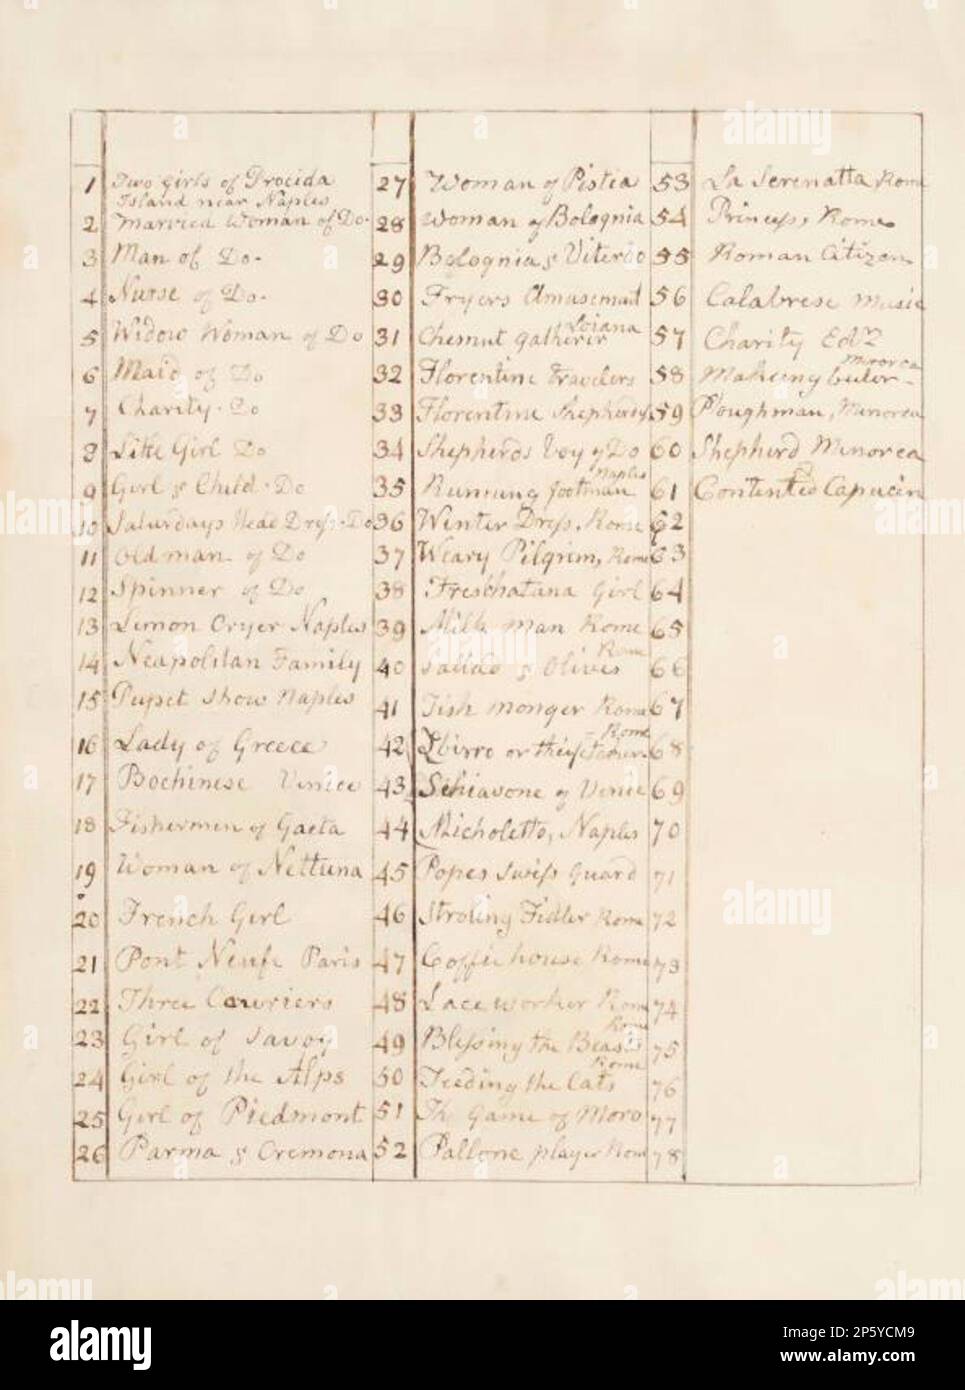 1 Two Girls of Procida
Island near Naples
2 Married Woman of Do.
3 Man of Do.
4 Nurse of Do.
5 Widow Woman of Do
6 Maid of Do
7 Charity. Do
8 Little Girl Do
9 Girl & Child. Do
10 Saturdays Head Dress. Do
11 Old man of Do
12 Spinner of Do
13 Lemon Cryer Naples
14 Neapolitan Family
15 Pupet show Naples
16 Lady of Greece
17 Bochinese Venice
18 Fishermen of Gaeta
19 Woman of Nettuna
20 French Girl
21 Pont Neufe Paris
22 Three Cawriers
23 Girl of Savoy
24 Girl of the Alps
25 Girl of Piedmont
26 Parma & Cremona
27 Woman of Pistia
28 Woman of Bolognia
29 Bolognia & Viterbo
30 Fryers Amusement
31 Chesnut gatherir Loiana
32 Florentine Travelers
33 Florentine Shepherdys
34 Shepherds boy of Do
35 Running footman Naples
36 Winter Dress, Rome
37 Weary Pilgrim, Rome
38 Freschatana Girl
39 Milk man Rome
40 & Olives Rome
41 Fish monger Rome
42 or Rome
43 Schiavone of Venice
44 Micholetto, Naples
45 Popes Swiss Guard
46 Stroling Fidler Rome
47 Coffie house Rome
48 Lace worker Rome
49 Blessing the Beasts Rome
50 Feeding the Cats Rome
51 The Game of Moro
52 Pallone player Rom
53 La Serenatta Rome
54 Princess, Rome
55 Roman Citizen
56 Calabrese Music
57 Charity Edr
58 Making buter Minorca
59 Ploughman, Minorca
60 Shepherd Minorca
61 Contented Capucin
62
63
64
65
66
67
68
69
70
71
72
73
74
75
76
77
78
alamy
Image ID: 2P5YCM9
www.alamy.com